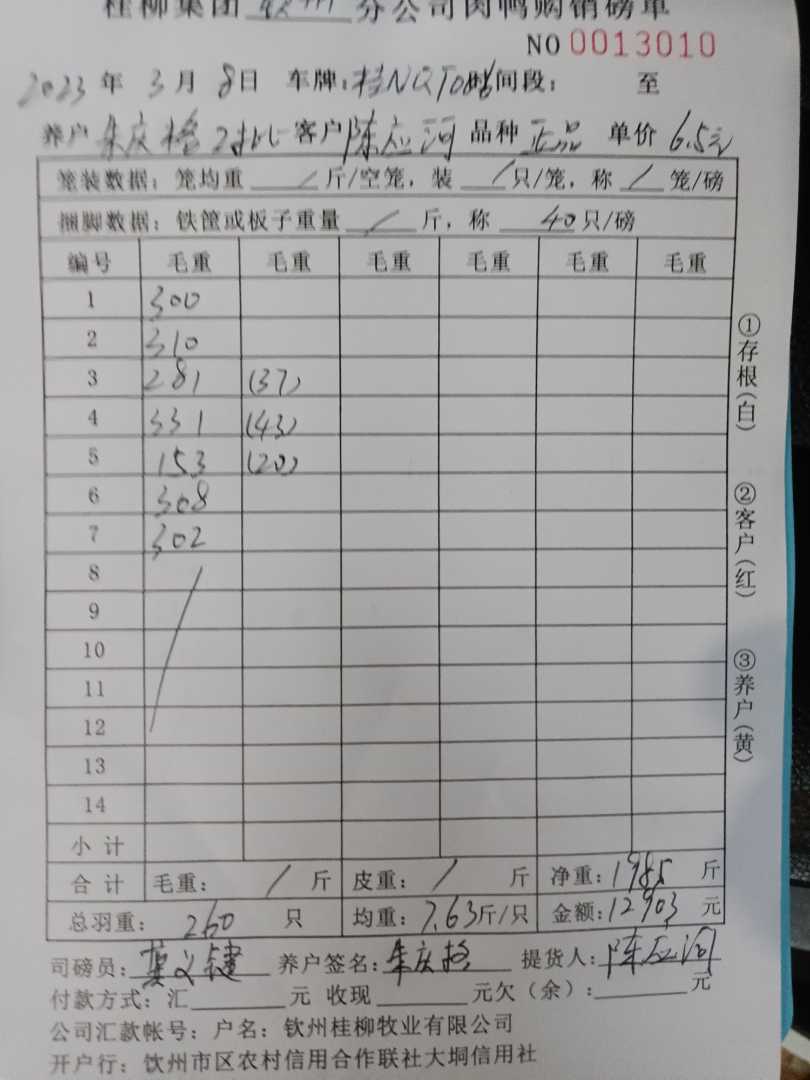 桂柳集团 钦州 分公司肉鸭购销磅单
NO 0013010
2023 年 3 月 8 日 车牌: 桂NQT0 时间段: 至
养户 朱庆格 客户 陈应河 品种 正品 单价 6.5元
笼装数据: 笼均重 / 斤/空笼, 装 / 只/笼, 称 / 笼/磅
捆脚数据: 铁筐或板子重量 / 斤, 称 40 只/磅
编号 毛重 毛重 毛重 毛重 毛重 毛重
1 300
2 310
3 281 (37)
4 331 (43)
5 153 (20)
6 308
7 302
8
9
10
11
12
13
14
小计
合计 毛重: / 斤 皮重: / 斤 净重: 1985 斤
总羽重: 260 只 均重: 7.63 斤/只 金额: 12903 元
司磅员: 义键 养户签名: 朱庆格 提货人: 陈应河
付款方式: 汇 元 收现 元欠(余): 元
公司汇款帐号: 户名: 钦州桂柳牧业有限公司
开户行: 钦州市区农村信用合作联社大垌信用社
①存根(白)
②客户(红)
③养户(黄)